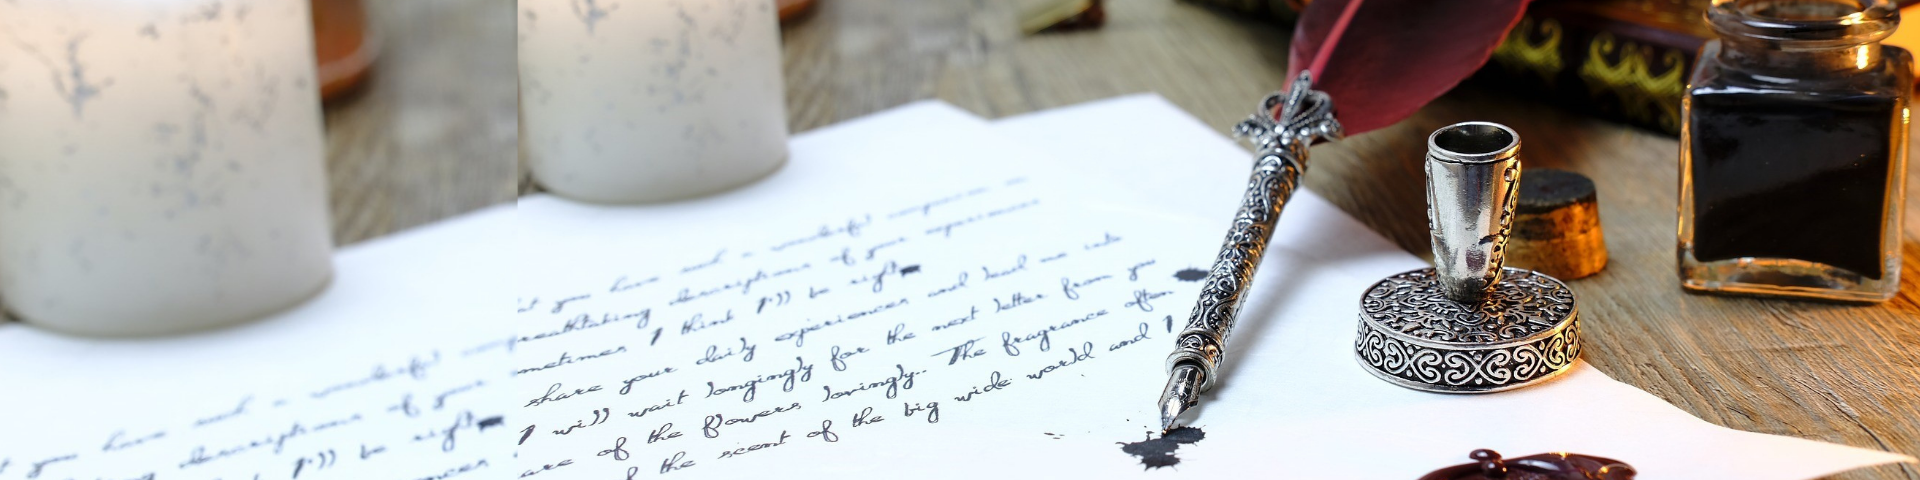 you have such a wonderful
descriptions of your
I'll be right
you have such a wonderful companion in
breathtaking descriptions of your experiences
sometimes I think I'll be right
share your daily experiences and lead me into
I will wait longingly for the next letter from you
are of the flowers lovingly.. The fragrance often
of the scent of the big wide world and I